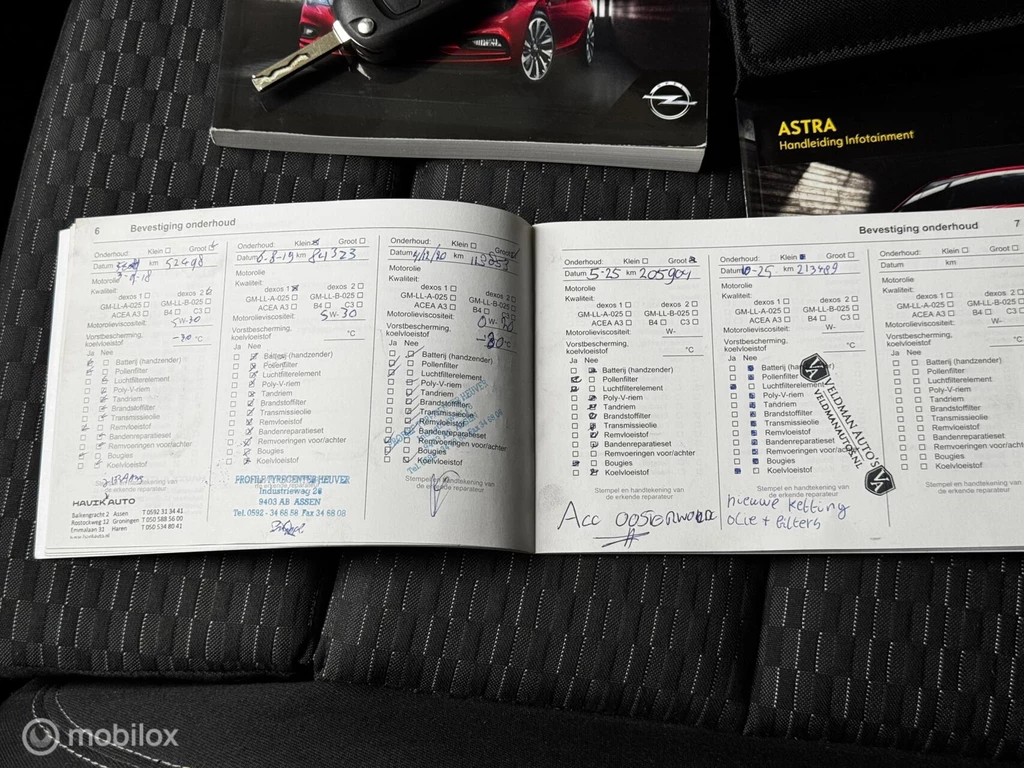 ASTRA
Handleiding Infotainment
6 Bevestiging onderhoud
Onderhoud: Klein Groot
Datum km 52498
9-18
Motorolie
Kwaliteit:
dexos 1 dexos 2
GM-LL-A-025 GM-LL-B-025
ACEA A3 B4 C3
Motorolieviscositeit: 5W-30
Vorstbescherming,
koelvloeistof -30 °C
Ja Nee
Batterij (handzender)
Pollenfilter
Luchtfilterelement
Poly-V-riem
Tandriem
Brandstoffilter
Transmissieolie
Remvloeistof
Bandenreparatieset
Remvoeringen voor/achter
Bougies
Koelvloeistof
Stempel en handtekening van
de erkende reparateur
HAVIK AUTO
Balkengracht 2 Assen T 0592 31 34 41
Rostockweg 12 Groningen T 050 588 56 00
Emmalaan 31 Haren T 050 534 80 41
www.havikauto.nl
Onderhoud: Klein Groot
Datum 6-8-19 km 84323
Motorolie
Kwaliteit:
dexos 1 dexos 2
GM-LL-A-025 GM-LL-B-025
ACEA A3 B4 C3
Motorolieviscositeit: 5W-30
Vorstbescherming,
koelvloeistof °C
Ja Nee
Batterij (handzender)
Pollenfilter
Luchtfilterelement
Poly-V-riem
Tandriem
Brandstoffilter
Transmissieolie
Remvloeistof
Bandenreparatieset
Remvoeringen voor/achter
Bougies
Koelvloeistof
PROFILE TYRECENTER HEUVER
Industrieweg 26
9403 AB ASSEN
Tel. 0592 - 34 68 58 Fax 34 68 08
Onderhoud: Klein Groot
Datum 4/12/20 km
Motorolie
Kwaliteit:
dexos 1 dexos 2
GM-LL-A-025 GM-LL-B-025
ACEA A3 B4 C3
Motorolieviscositeit: 0W-
Vorstbescherming,
koelvloeistof -30 °C
Ja Nee
Batterij (handzender)
Pollenfilter
Luchtfilterelement
Poly-V-riem
Tandriem
Brandstoffilter
Transmissieolie
Remvloeistof
Bandenreparatieset
Remvoeringen voor/achter
Bougies
Koelvloeistof
Stempel en handtekening van
de erkende reparateur
Bevestiging onderhoud 7
Onderhoud: Klein Groot
Datum 5-25 km 205904
Motorolie
Kwaliteit:
dexos 1 dexos 2
GM-LL-A-025 GM-LL-B-025
ACEA A3 B4 C3
Motorolieviscositeit: W-
Vorstbescherming,
koelvloeistof °C
Ja Nee
Batterij (handzender)
Pollenfilter
Luchtfilterelement
Poly-V-riem
Tandriem
Brandstoffilter
Transmissieolie
Remvloeistof
Bandenreparatieset
Remvoeringen voor/achter
Bougies
Koelvloeistof
Stempel en handtekening van
de erkende reparateur
Acc
Onderhoud: Klein Groot
Datum 6-25 km 213489
Motorolie
Kwaliteit:
dexos 1 dexos 2
GM-LL-A-025 GM-LL-B-025
ACEA A3 B4 C3
Motorolieviscositeit: W-
Vorstbescherming,
koelvloeistof °C
Ja Nee
Batterij (handzender)
Pollenfilter
Luchtfilterelement
Poly-V-riem
Tandriem
Brandstoffilter
Transmissieolie
Remvloeistof
Bandenreparatieset
Remvoeringen voor/achter
Bougies
Koelvloeistof
VELDMAN AUTO'S
VELDMANAUTOS.NL
Stempel en handtekening van
de erkende reparateur
nieuwe ketting
olie + filters
Onderhoud: Klein Groot
Datum km
Motorolie
Kwaliteit:
dexos 1 dexos 2
GM-LL-A-025 GM-LL-B-025
ACEA A3 B4 C3
Motorolieviscositeit: W-
Vorstbescherming,
koelvloeistof °C
Ja Nee
Batterij (handzender)
Pollenfilter
Luchtfilterelement
Poly-V-riem
Tandriem
Brandstoffilter
Transmissieolie
Remvloeistof
Bandenreparatieset
Remvoeringen voor/achter
Bougies
Koelvloeistof
Stempel en handtekening van
de erkende reparateur
mobilox